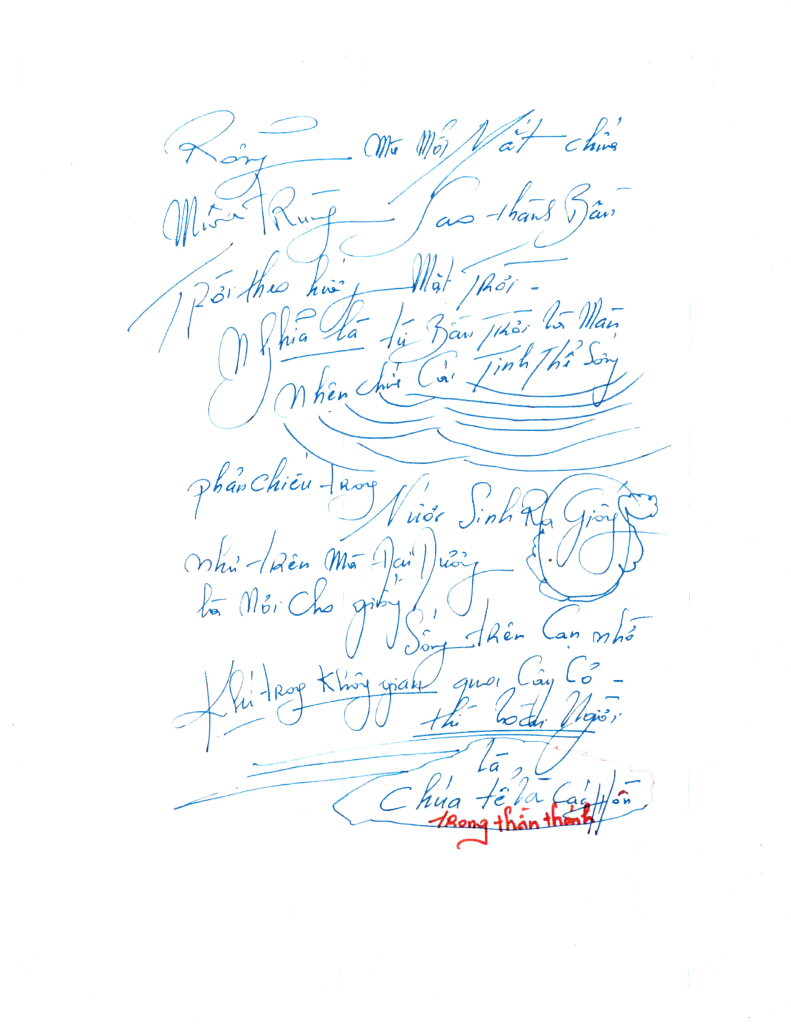 Rồng mà Mỗi Mắt chứa
Muôn Trùng Sao thành Bầu
Trời theo hướng Mặt Trời -
Nghĩa là từ Bầu Trời là Màn
Nhện chứa Cái Tinh Thể Sống
phản chiếu trong
Nước Sinh Ra Giống
như trên Mà Đại Dương
là Nơi cho giống
Sống trên Cạn nhờ
Khí trong không gian qua Cây Cỏ -
thì loài Người
là
Chúa tể là Cái Hồn
trong thân thánh